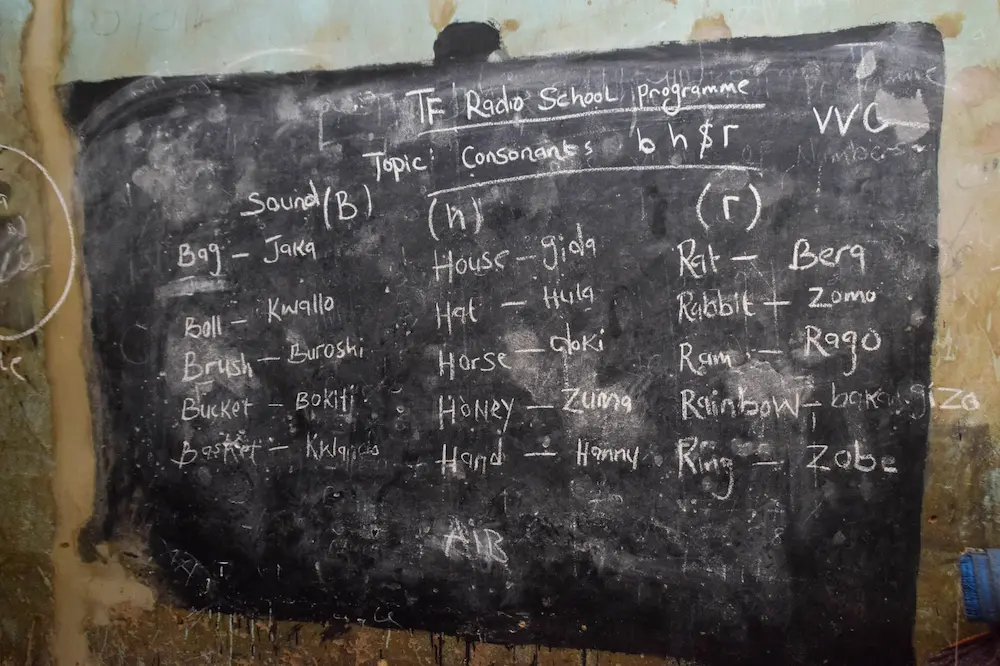 TF Radio School programme
VVC
Topic: Consonants b h $ r
Sound (B) (h) (r)
Bag – Jaka House – gida Rat – Bera
Boll – Kwallo Hat – Hula Rabbit – Zomo
Brush – Buroshi Horse – doki Ram – Rago
Bucket – Bokiti Honey – Zuma Rainbow – bakan giza
Basket – Hand – Hanny Ring – Zobe
AIB